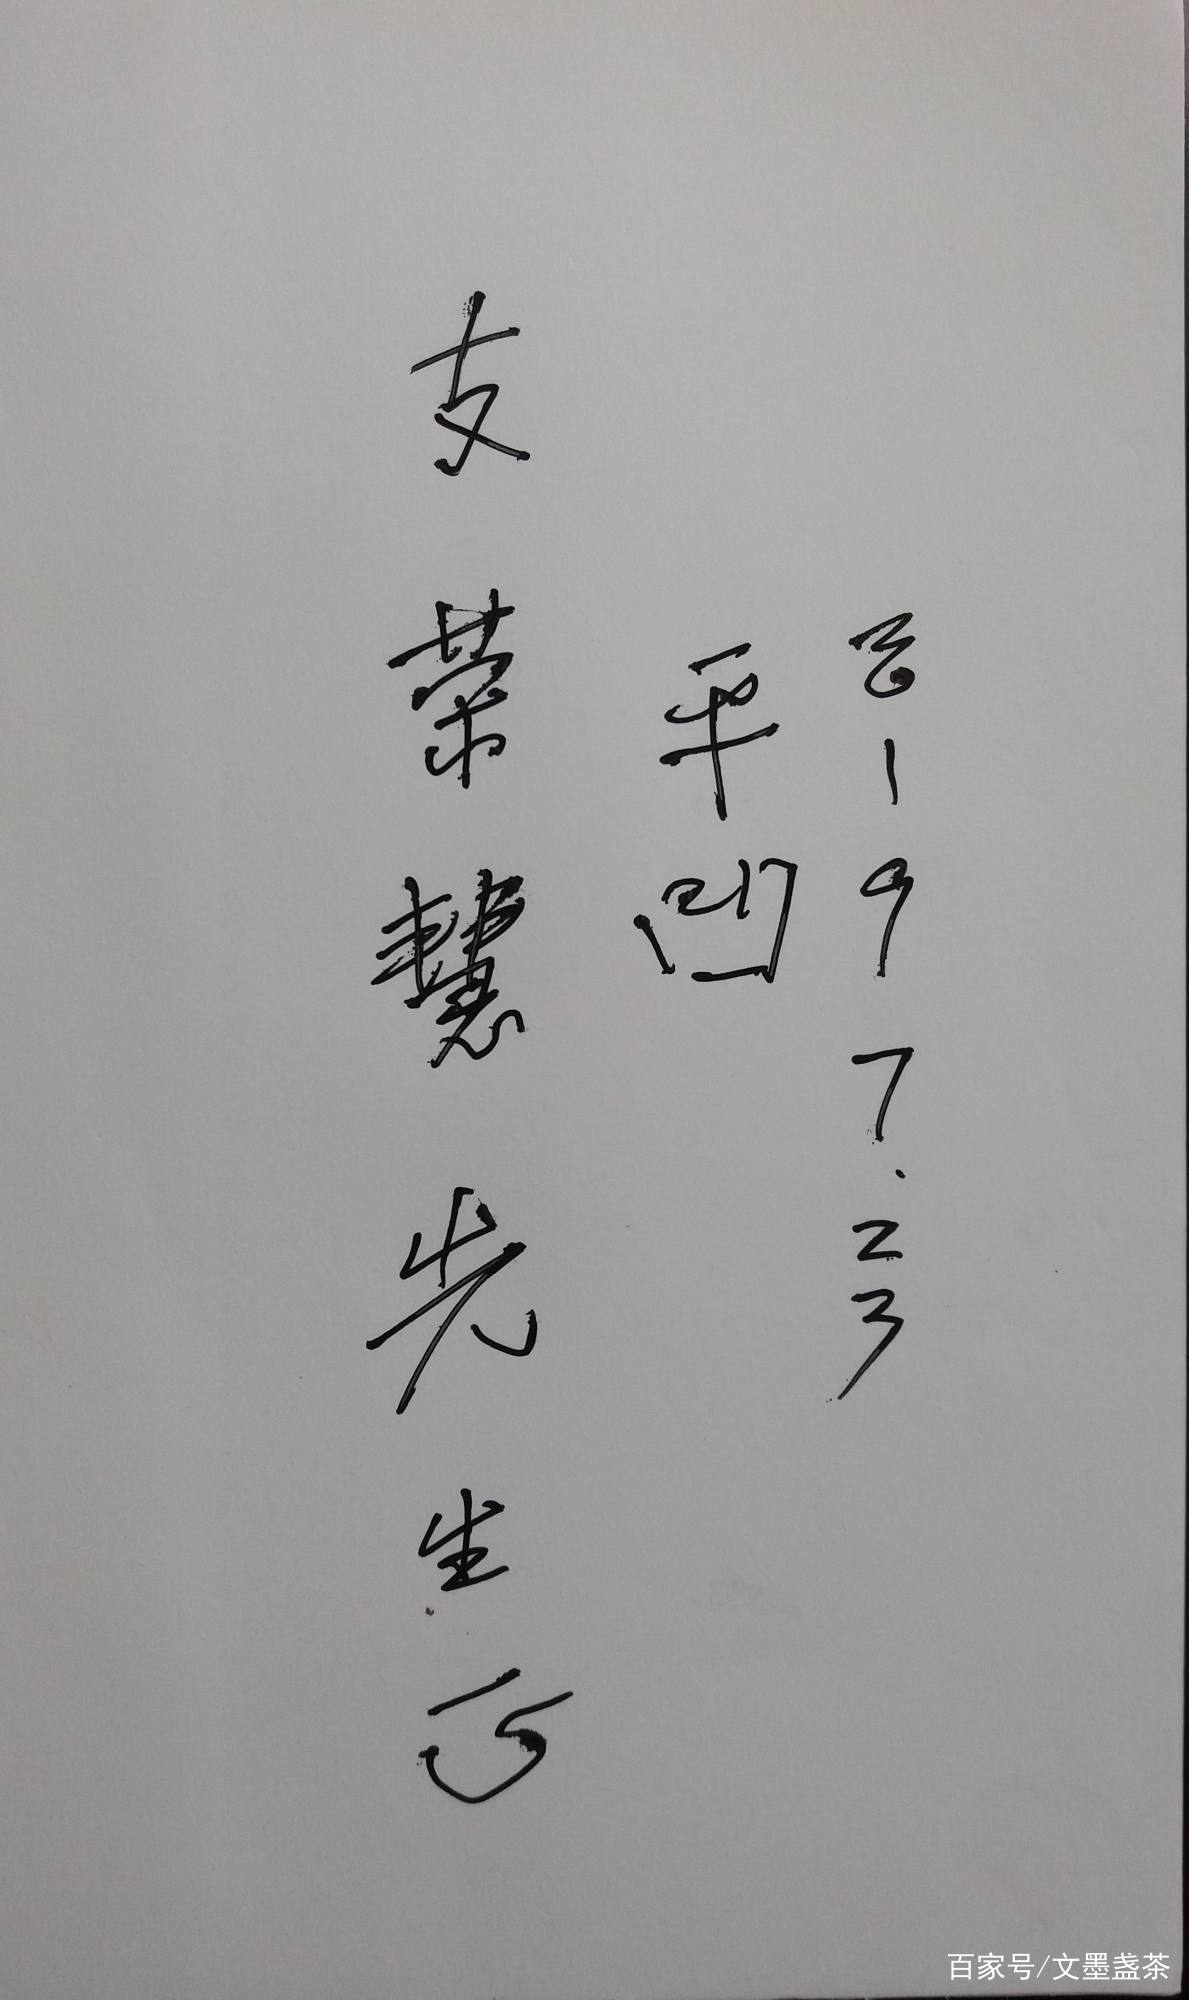 支荣慧先生正
平凹
2019 7.23
百家号/文墨盏茶